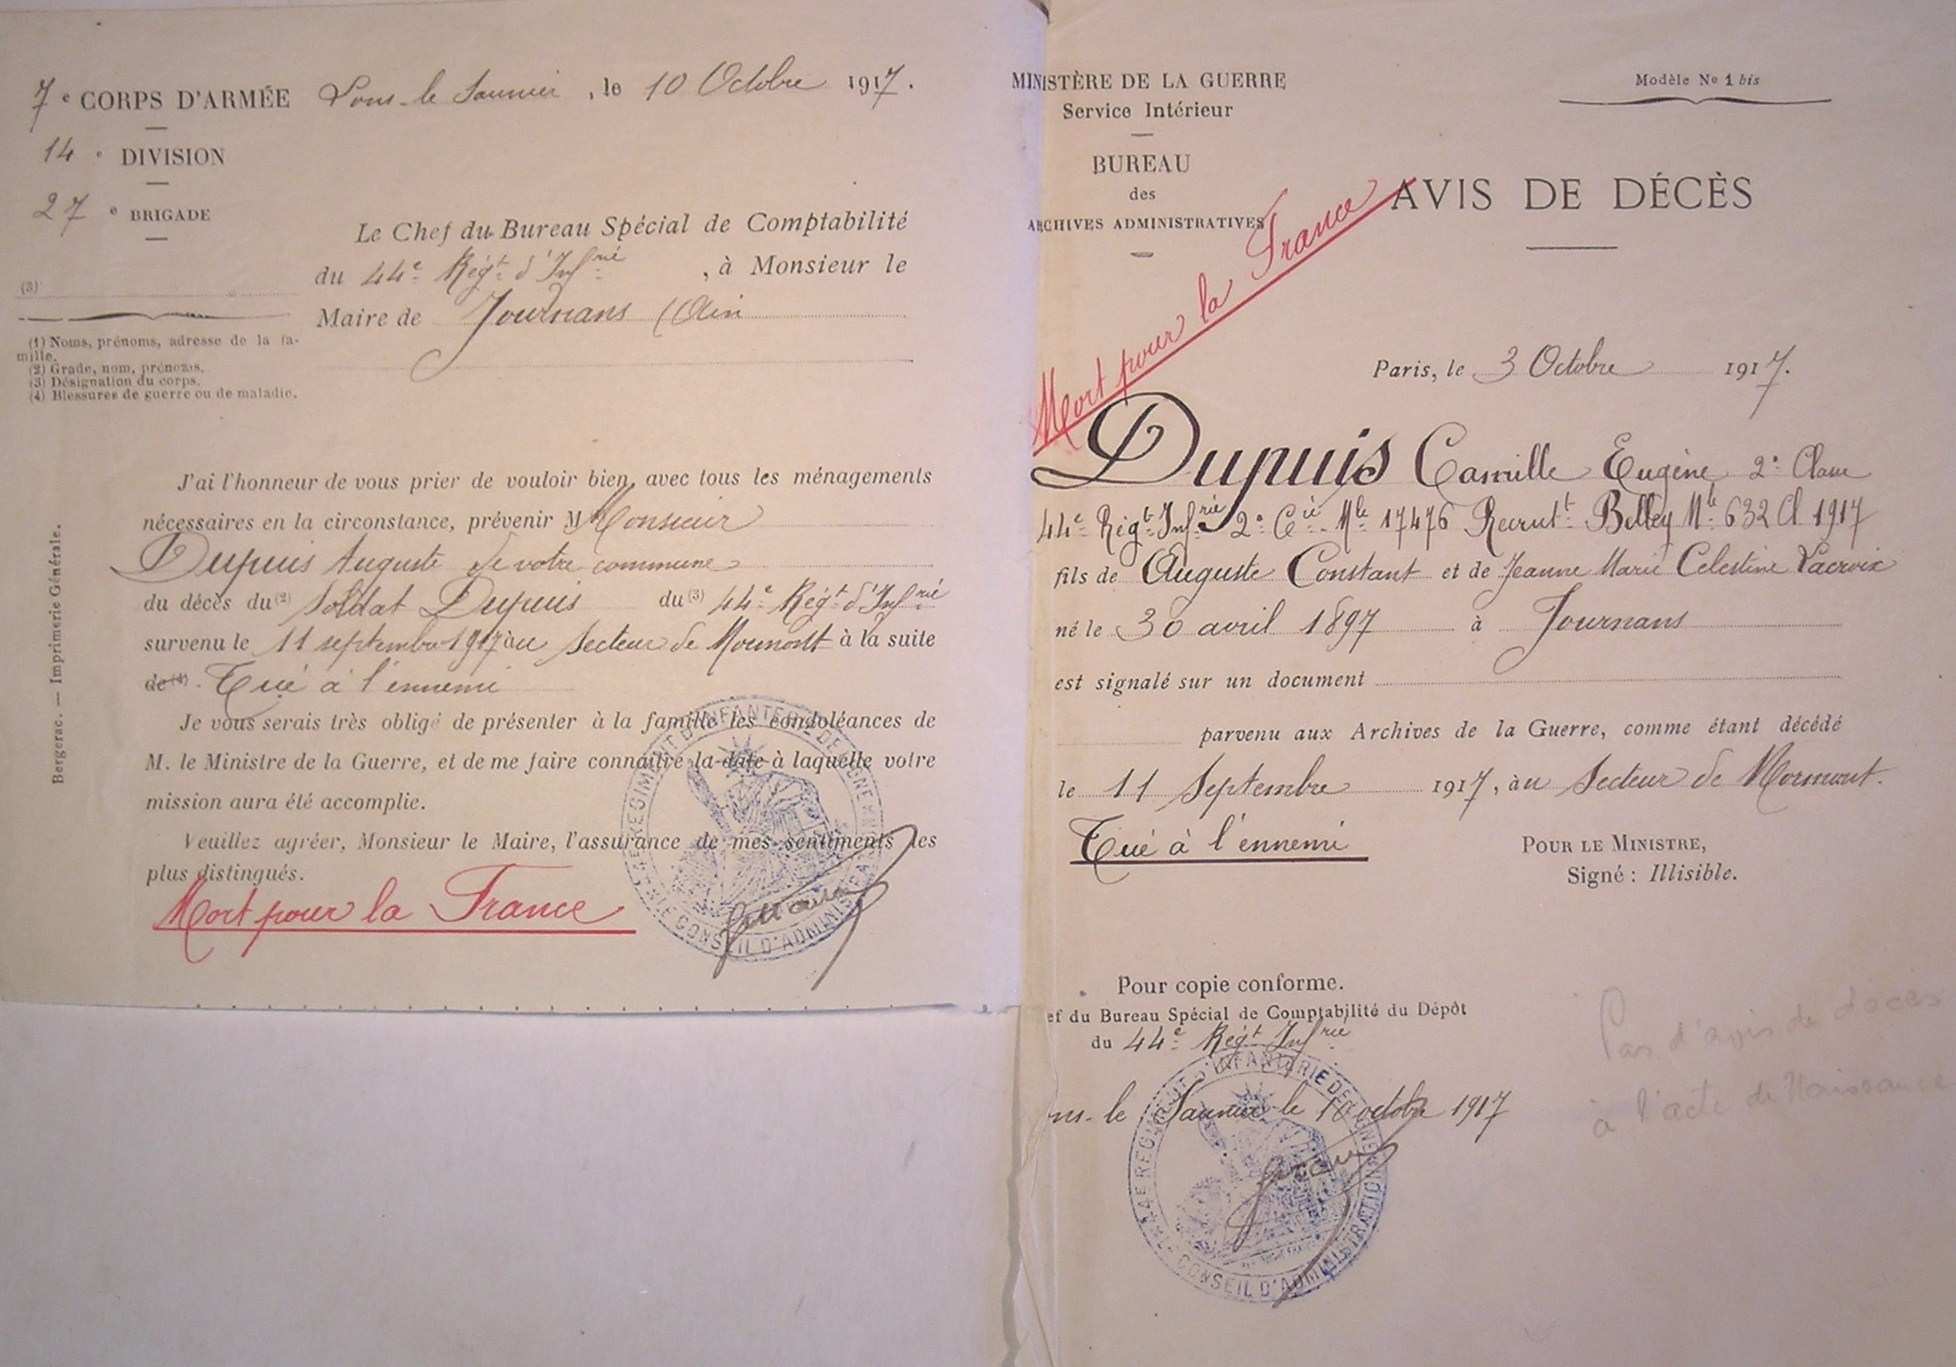 7e CORPS D'ARMÉE
14e DIVISION
27e BRIGADE
Lons-le Saunier, le 10 Octobre 1917.
Le Chef du Bureau Spécial de Comptabilité
du 44e Régt d'Infrie, à Monsieur le
Maire de Journans (Ain
(3)
(1) Noms, prénoms, adresse de la fa-
mille.
(2) Grade, nom, prénoms.
(3) Désignation du corps.
(4) Blessures de guerre ou de maladie.
J'ai l'honneur de vous prier de vouloir bien, avec tous les ménagements
nécessaires en la circonstance, prévenir M Monsieur
Dupuis Auguste de votre commune
du décès du (2) Soldat Dupuis du (3) 44e Régt d'Infrie
survenu le 11 septembre 1917 au Secteur de Mormont à la suite
de (4). Tué à l'ennemi
Je vous serais très obligé de présenter à la famille les condoléances de
M. le Ministre de la Guerre, et de me faire connaître la date à laquelle votre
mission aura été accomplie.
Veuillez agréer, Monsieur le Maire, l'assurance de mes sentiments les
plus distingués.
Mort pour la France
44E REGIMENT D'INFANTERIE DE LIGNE
CONSEIL D'ADMINISTRATION
Bergerac. — Imprimerie Générale.
MINISTÈRE DE LA GUERRE
Service Intérieur
BUREAU
des
ARCHIVES ADMINISTRATIVES
Modèle No 1 bis
AVIS DE DÉCÈS
Mort pour la France
Paris, le 3 Octobre 1917.
Dupuis Camille Eugène 2e Classe
44e Régt Infrie 2e Cie Mle 17476 Recrutt Belley Mle 632 Cl 1917
fils de Auguste Constant et de Jeanne Marie Celestine Lacroix
né le 30 avril 1897 à Journans
est signalé sur un document
parvenu aux Archives de la Guerre, comme étant décédé
le 11 Septembre 1917, au Secteur de Mormont.
Tué à l'ennemi
POUR LE MINISTRE,
Signé : Illisible.
Pour copie conforme.
ef du Bureau Spécial de Comptabilité du Dépôt
du 44e Régt Infrie
ns-le Saunier le 10 octobre 1917
44E REGIMENT D'INFANTERIE DE LIGNE
CONSEIL D'ADMINISTRATION
Pas d'avis de décès
à l'acte de Naissance